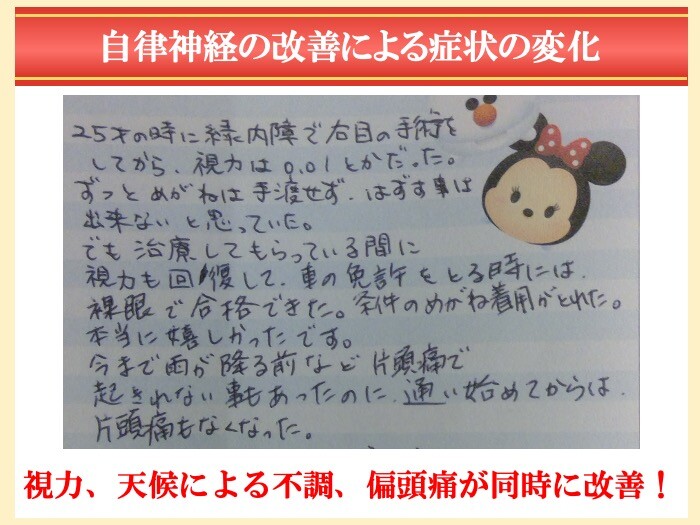 自律神経の改善による症状の変化
25才の時に緑内障で右目の手術を
してから、視力は0.01とかだった。
ずっとめがねは手渡せず、はずす事は
出来ないと思っていた。
でも治療してもらっている間に
視力も回復して、車の免許をとる時には、
裸眼で合格できた。条件のめがね着用がとれた。
本当に嬉しかったです。
今まで雨が降る前など片頭痛で
起きれない事もあったのに、通い始めてからは、
片頭痛もなくなった。
視力、天候による不調、偏頭痛が同時に改善！